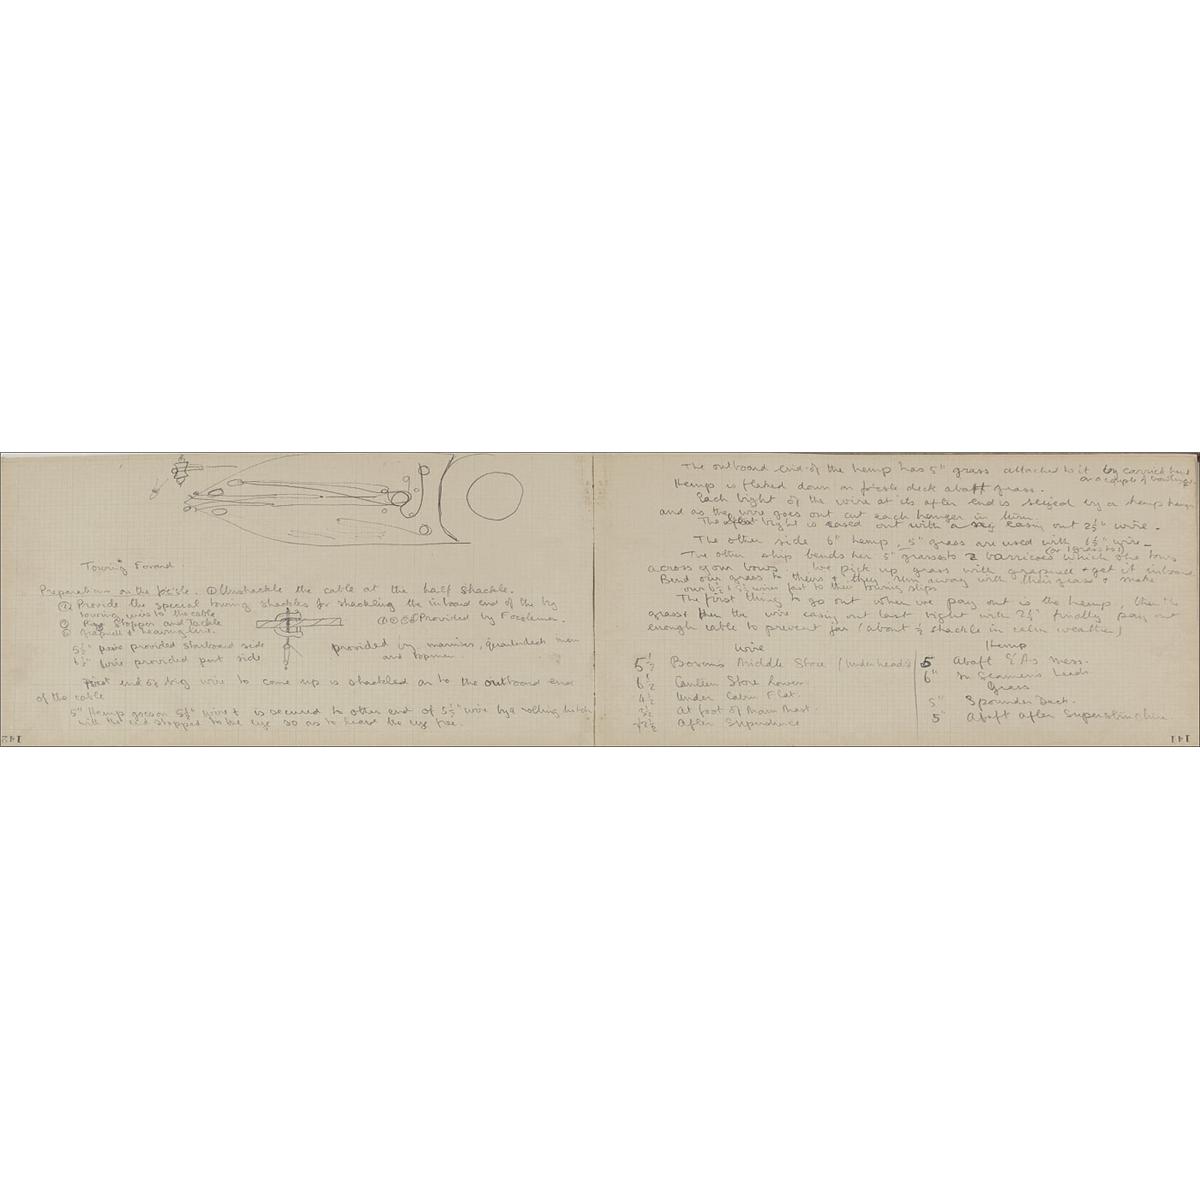 Towing Forward
Preparations on the fo'c'sle. Unshackle the cable at the half shackle.
Provide the special towing shackles for shackling the inboard end of the big
towing wires to the cable
Stopper and Tackle
Grapnell & heaving line.
Provided by Foxglemen.
5½" wire provided starboard side
6½" wire provided port side
provided by marines, quarterdeck men
and topmen.
First end of big wire to come up is shackled on to the outboard end
of the cable
5" Hemp goes on 5½" wire & is secured to other end of 5½" wire by a rolling hitch
with the end stopped to the eye so as to the eye fire.
142
The outboard end of the hemp has 5" grass attached to it by carrick bend
or a couple of
Hemp is flaked down on fo'csle deck abaft grass.
Each bight of the wire at its after end is seized by a hemp hanger
and as the wire goes out cut each hanger in turn.
The bight is eased out with a easing out 2½" wire.
The other side 6" hemp, 5" grass are used with 6½" wire.
The other ship bends her 5" grass to 2 barricoes which she tows
(or 1 grass to 1)
across your bows. We pick up grass with grapnell & get it inboard
Bend our grass to theirs & they run away with their grass & make
our 6½ & 5½ wires fast to their towing slips
The first thing to go out when we pay out is the hemp, then the
grass & then the wire easing out last bight with 2½" finally pay out
enough cable to prevent jar (about ½ shackle in calm weather)
Wire
5½ Bosuns Middle Store (Underheads)
6½ Canteen Store Lower.
4½ Under Cabin Flat.
3½ At foot of Main Mast.
2½ After Superstructure
Hemp
5 Abaft Mess.
6" In Seamens Heads
Grass
5" Deck.
5" Abaft after Superstructure
141